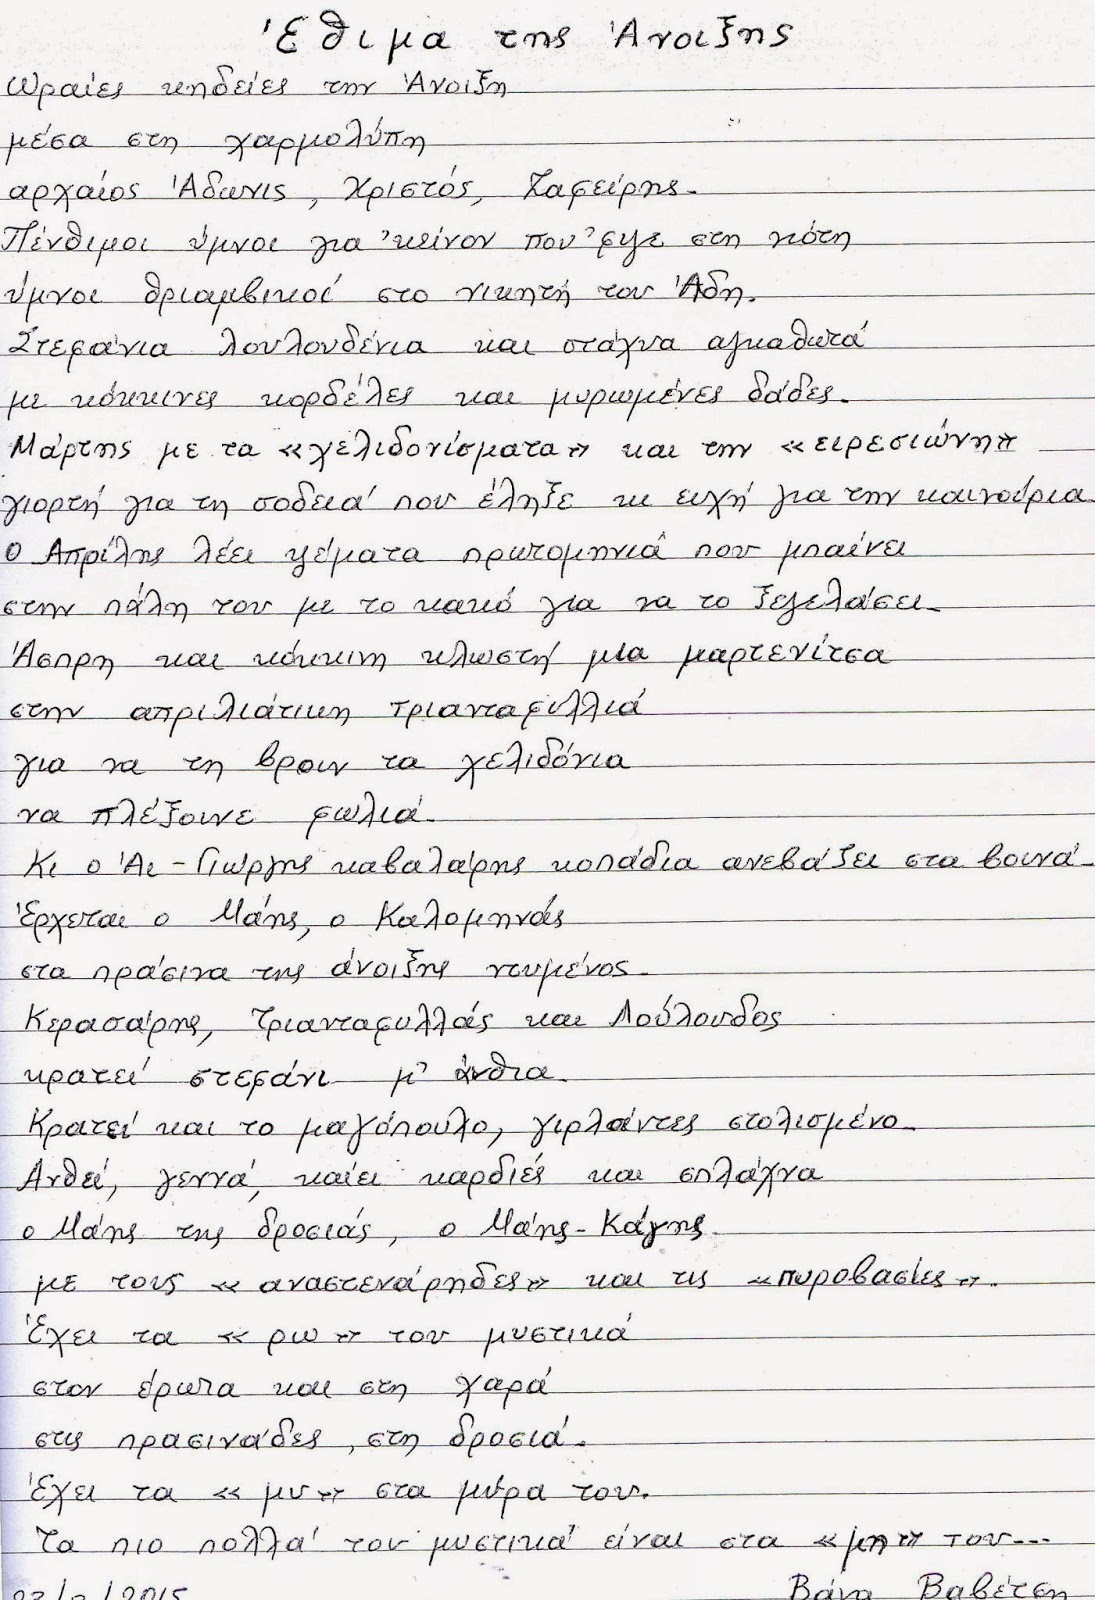 Έθιμα της Άνοιξης
Ωραίες κηδείες την Άνοιξη
μέσα στη χαρμολύπη
αρχαίος Άδωνις, Χριστός, Ζαφείρης.
Πένθιμοι ύμνοι για 'κείνον που 'φυγε στη νιότη
ύμνοι θριαμβικοί στο νικητή του Άδη.
Στεφάνια λουλουδένια και στάχυα αγκαθωτά
με κόκκινες κορδέλες και μυρωμένες δάδες.
Μάρτης με τα «χελιδονίσματα» και την «ειρεσιώνη»
γιορτή για τη σοδειά που έληξε κι ευχή για την καινούρια.
Ο Απρίλης λέει ψέματα πρωτομηνιά που μπαίνει
στην πάλη του με το κακό για να το ξεγελάσει.
Άσπρη και κόκκινη κλωστή μια μαρτενίτσα
στην απριλιάτικη τριανταφυλλιά
για να τη βρουν τα χελιδόνια
να πλέξουνε φωλιά.
Κι ο Άι-Γιώργης καβαλάρης κοπάδια ανεβάζει στα βουνά.
Έρχεται ο Μάης, ο Καλομηνάς
στα πράσινα της άνοιξης ντυμένος.
Κερασάρης, Τριανταφυλλάς και Λούλουδος
κρατεί στεφάνι μ' άνθια.
Κρατεί και το μαγόπουλο, γιρλάντες στολισμένο.
Ανθεί, γεννά, καίει καρδιές και σπλάχνα
ο Μάης της δροσιάς, ο Μάης-Κάψης.
με τους «αναστενάρηδες» και τις «πυροβασίες».
Έχει τα «ρω» του μυστικά
στον έρωτα και στη χαρά
στις πρασινάδες, στη δροσιά.
Έχει τα «μυ» στα μύρα του.
Τα πιο πολλά του μυστικά είναι στα «μη» του...
Βάνα Βαβέτση